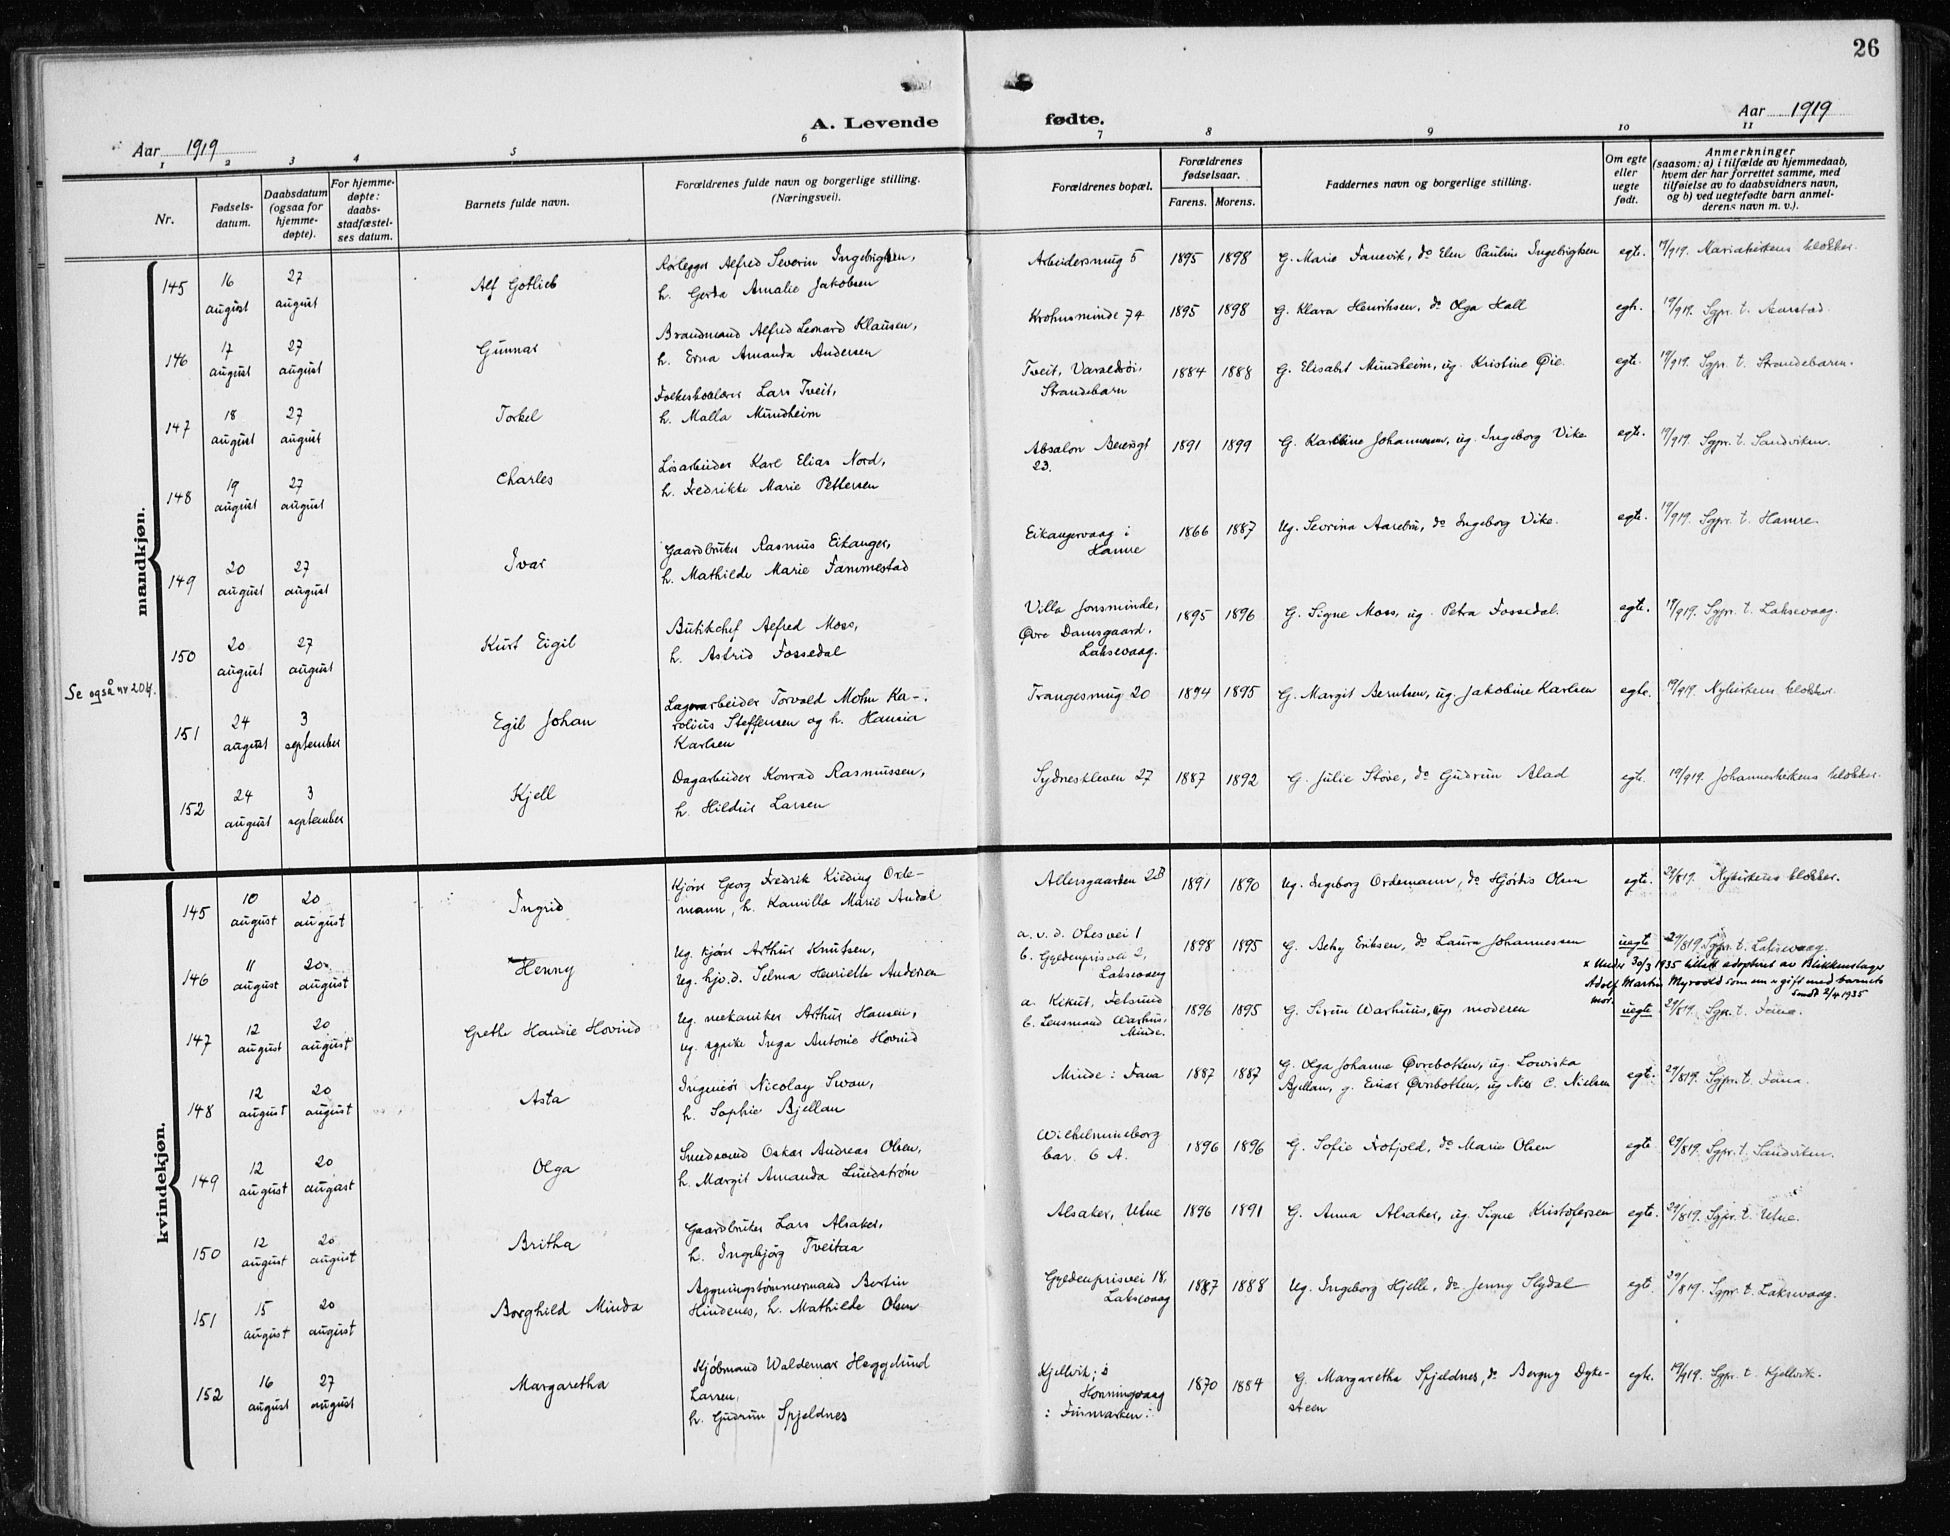 26
A. Levende fødte.
Aar 1919
Aar 1919
1 2 3 4 5 6 7 8 9 10 11
Nr.
Fødsels-
datum.
Daabsdatum
(ogsaa for
hjemme-
døpte).
For hjemme-
døpte:
daabs-
stadfæstel-
ses datum.
Barnets fulde navn.
Forældrenes fulde navn og borgerlige stilling.
(Næringsvei).
Forældrenes bopæl.
Forældrenes
fødselsaar.
Farens. Morens.
Faddernes navn og borgerlige stilling.
Om egte
eller
uegte
født.
Anmerkninger
(saasom: a) i tilfælde av hjemmedaab,
hvem der har forrettet samme, med
tilføielse av to daabsvidners navn,
og b) ved uegtefødte barn anmel-
derens navn m. v.).
mandkjøn.
145 16 august 27 august Alf Gotlieb
Rørlegger Alfred Severin Ingebrigtsen,
h. Gerda Amalie Jakobsen
Arbeidersmug 5 1895 1898 G. Marie Fanevik, do Elen Pauline Ingebrigtsen egte. 19/919. Mariakirkens klokker.
146 17 august 27 august Gunnar
Brandmand Alfred Leonard Klausen,
h. Erna Amanda Andersen
Krohnsminde 74 1895 1898 G. Klara Henriksen, do Olga Hall egte. 19/919. Sgpr. t. Aarstad.
147 18 august 27 august Torkel
Folkeskolelærer Lars Tveit,
h. Malla Mundheim
Tveit, Varaldsøi,
Strandebarm
1884 1888 G. Elisabet Mundheim, ug. Kristine Øie. egte. 19/919. Sgpr. t. Strandebarm.
148 19 august 27 august Charles
Løsarbeider Karl Elias Nord,
h. Fredrikke Marie Pettersen
Absalon Beiersgt
23.
1891 1899 G. Karoline Johannesen, ug. Ingeborg Vike egte. 19/919. Sgpr. t. Sandviken.
149 20 august 27 august Ivar
Gaardbruker Rasmus Eikanger,
h. Mathilde Marie Fammestad
Eikangervaag i
Hamre
1866 1887 Ug. Sevrina Aarebru, do Ingeborg Vike. egte. 19/919. Sgpr. t. Hamre.
150 20 august 27 august Kurt Eigil
Butikchef Alfred Moss,
h. Astrid Fossedal
Villa Jonsminde,
Øvre Damsgaard,
Laksevaag.
1895 1896 G. Signe Moss, ug. Petra Fossedal. egte. 19/919. Sgpr. t. Laksevaag.
Se også nr 204.
151 24 august 3 september Egil Johan
Lagerarbeider Torvald Mohn Ka-
rolius Steffensen og h. Hansia
Karlsen
Trangesmug 20 1894 1895 G. Margit Berntsen, ug. Jakobine Karlsen egte. 19/919. Nykirkens klokker.
152 24 august 3 september Kjell
Dagarbeider Konrad Rasmussen,
h. Hildur Larsen
Sydneskleven 27 1887 1892 G. Julie Støve, do Gudrun Alad egte. 19/919. Johanneskirkens klokker.
kvindekjøn.
145 10 august 20 august Ingrid
Kjører Georg Fredrik Kieding Orde-
mann, h. Kamilla Marie Andal
Allersgaarden 2B 1891 1890 Ug. Ingeborg Ordemann, do Hjørdis Olsen egte. 29/819. Nykirkens klokker.
146 11 august 20 august Henny
Ug. kjører Arthur Knutsen,
Ug. hjv.d. Selma Henriette Andersen
a. v. d. Ohesvei 1
b. Gyldenprisvei 2,
Laksevaag
1898 1895 G. Betsy Eriksen, do Laura Johannessen uegte 29/819. Sgpr. t. Laksevaag.
x Under 30/3 1935 tillatt adoptert av Blikkenslager
Adolf Martin Myrvold som er gift med barnets
mor. 2/4 1935
147 12 august 20 august Grethe Haudie Hovind
Ug. mekaniker Arthur Hansen,
ug. sypike Inga Antonie Hovind
a. Kikut, Felsund
b. Lensmand Warhus,
Minde.
1896 1895 G. Sirun Warhuus, ug. moderen uegte 29/819. Sgpr. t. Fana.
148 12 august 20 august Asta
Ingeniør Nicolay Swan,
h. Sophie Bjellan
Minde: Fana 1887 1887
G. Olga Johanne Øvrebotten, ug. Lowiska
Bjellan, g. Einar Øvrebotten, ug Nils C. Nielsen
egte. 29/819. Sgpr. t. Fana.
149 12 august 20 august Olga
Smedsvend Oskar Andreas Olsen,
h. Margit Amanda Lundstrøm
Wilhelmineborg
bar. 6 A.
1896 1896 G. Sofie Trofjold, do Marie Olsen egte 29/819. Sgpr. t. Sandviken.
150 12 august 20 august Britha
Gaardbruker Lars Alsaker,
h. Ingebjørg Tveitaa
Alsaker, Utne 1896 1891 G. Anna Alsaker, ug. Signe Kristofersen egte. 29/819. Sgpr. t. Utne.
151 15 august 20 august Borghild Minda
Bygningstømmermand Bertin
Hindenes, h. Mathilde Olsen
Gyldenprisvei 18,
Laksevaag
1887 1888 Ug. Ingeborg Hjelle, do Jenny Slydal egte. 29/819. Sgpr. t. Laksevaag.
152 16 august 27 august Margaretha
Kjøbmand Waldemar Heggelund
Larsen,
h. Gudrun Spjeldnes
Kjelvik; i
Honningsvaag
: Finmarken :
1870 1884
G. Margaretha Spjeldnes, do Bergny Dyke-
steen
egte. 19/919. Sgpr. t. Kjelvik.